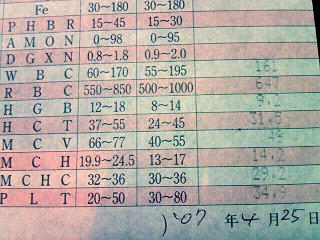 Fe 30~180 30~180
P H B R 15~45 15~30
A M O N 0~98 0~95
D G X N 0.8~1.8 0.9~2.0
W B C 60~170 55~195 161
R B C 550~850 500~1000
H G B 12~18 8~14 9.2
H C T 37~55 24~45
M C V 66~77 40~55 49
M C H 19.9~24.5 13~17 14.2
M C H C 32~36 30~36 29.2
P L T 20~50 30~80 34.9
'07 年4月25日